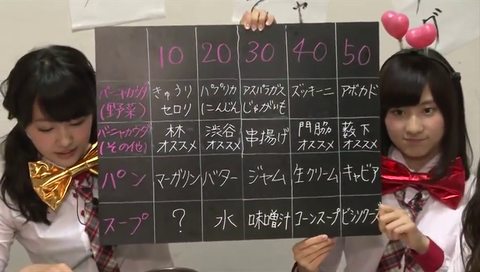 10 20 30 40 50
バーニャカウダ
(野菜)
きゅうり
セロリ
パプリカ
にんじん
アスパラガス
じゃがいも
ズッキーニ
アボカド
バーニャカウダ
(その他)
林
オススメ
渋谷
オススメ
串揚げ
門脇
オススメ
藪下
オススメ
パン マーガリン バター ジャム 生クリーム キャビア
スープ ? 水 味噌汁 コーンスープ